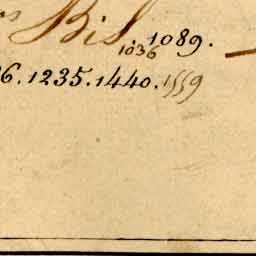 Bis 1036 1089.
6.1235.1440.1559